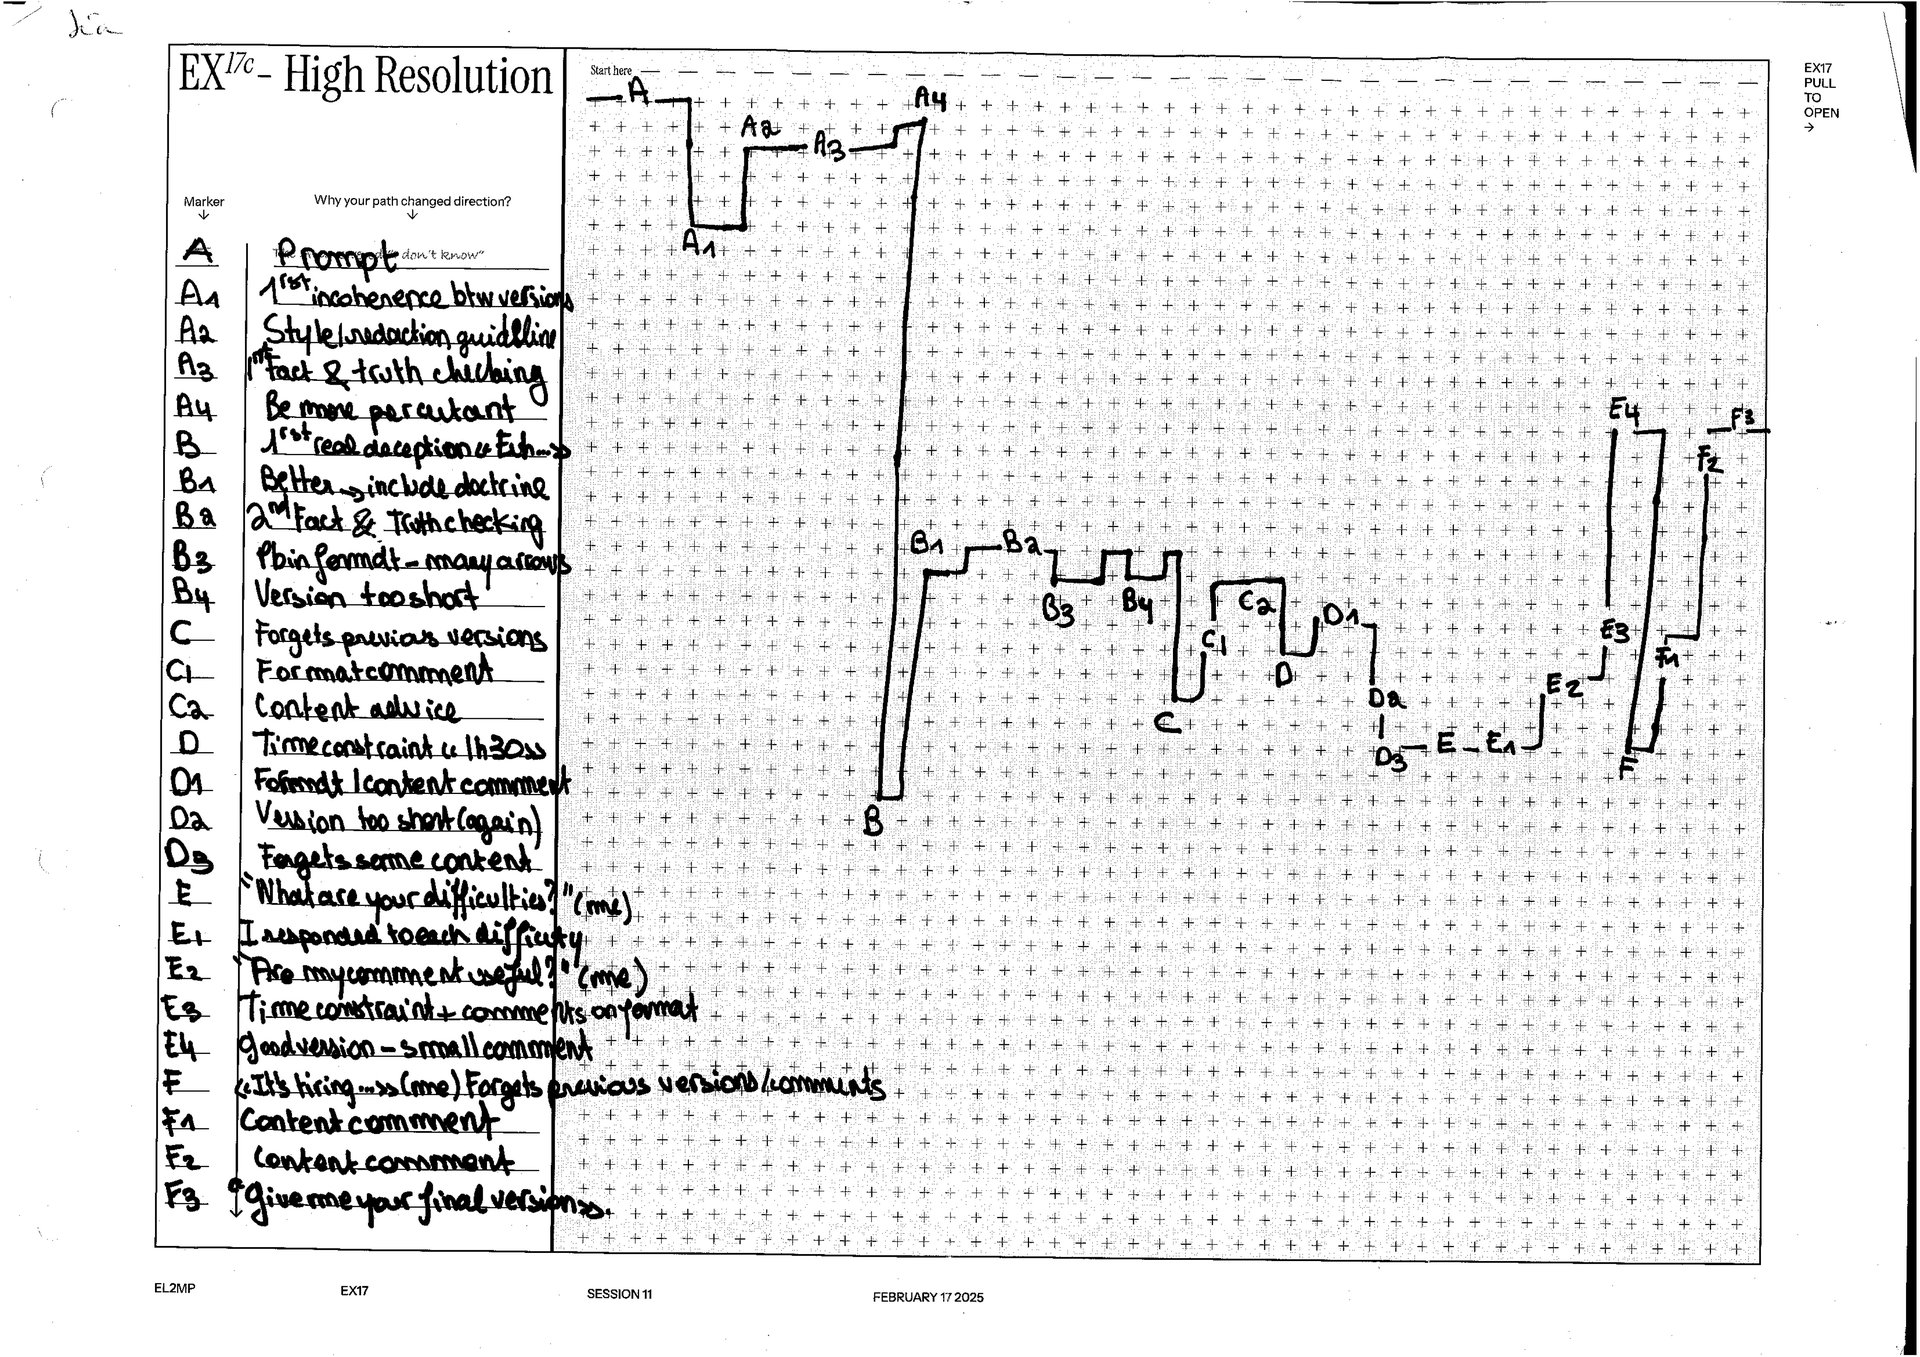 EX17c - High Resolution
Start here
EX17
PULL
TO
OPEN
→
Marker
Why your path changed direction?
A Prompt don't know"
A1 1rst incoherence btw versions
A2 Style/redaction guidline
A3 1rst Fact & truth checking
A4 Be more percutant
B 1rst real deception «Euh...»
B1 Better → include doctrine
B2 2nd Fact & Truth checking
B3 Pb in format - many arrows
B4 Version too short
C Forgets previous versions
C1 Format comment
C2 Content advice
D Time constraint «1h30»
D1 Format / content comment
D2 Version too short (again)
D3 Forgets some content
E "What are your difficulties?" (me)
E1 I responded to each difficuty
E2 "Are my comment useful?" (me)
E3 Time constraint + comments on format
E4 Good version - small comment
F «It's tiring...» (me) Forgets previous versions/comments
F1 Content comment
F2 Content comment
F3 «Give me your final version».
A
A1
A2
A3
A4
B
B1
B2
B3
B4
C
C1
C2
D
D1
D2
D3
E
E1
E2
E3
E4
F
F1
F2
F3
EL2MP
EX17
SESSION 11
FEBRUARY 17 2025